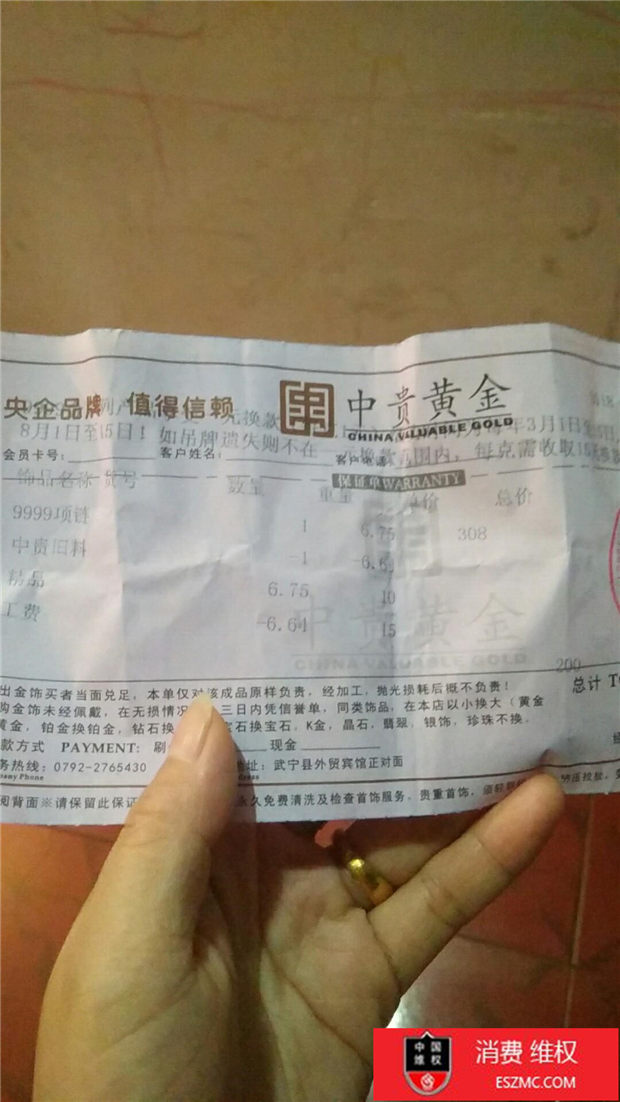 央企品牌 值得信赖
中贵黄金
CHINA VALUABLE GOLD
8月1日至15日！如吊牌遗失则不在
年3月1日至5日
换款范围内，每克需收取
会员卡号：
客户姓名：
客户电话
保证单WARRANTY
饰品名称 货号 数量 重量 单价 总价
9999项链 1 6.75 308
中贵旧料 -1
精品 6.75 10
工费 -6.64 15
中贵黄金
CHINA VALUABLE GOLD
200
出金饰买者当面兑足，本单仅对该成品原样负责，经加工，抛光损耗后概不负责！
总计
购金饰未经佩戴，在无损情况 三日内凭信誉单，同类饰品，在本店以小换大（黄金
黄金，铂金换铂金，钻石换 宝石换宝石，K金，晶石，翡翠，银饰，珍珠不换。
款方式 PAYMENT: 刷 现金
务热线：0792-2765430
址：武宁县外贸宾馆正对面
pany Phone
dress
阅背面※请保留此保证 永久免费清洗及检查首饰服务。贵重首饰，
中国
维权
消费 维权
ESZMC.COM